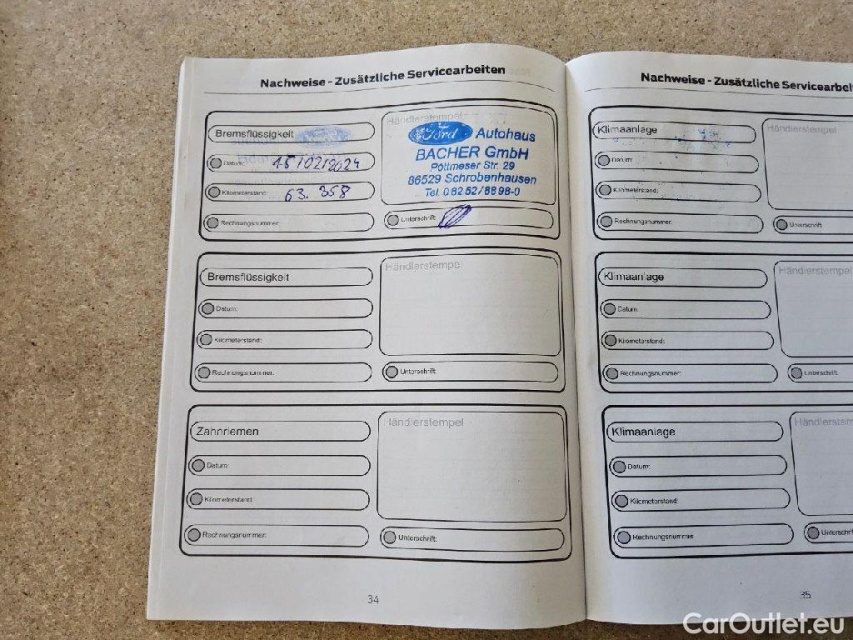 Nachweise - Zusätzliche Servicearbeiten
Bremsflüssigkeit
Datum: 15/02/2024
Kilometerstand: 63.358
Rechnungsnummer:
Händlerstempel
Ford Autohaus
BACHER GmbH
Pöttmeser Str. 29
86529 Schrobenhausen
Tel. 08252/8898-0
Unterschrift:
Bremsflüssigkeit
Datum:
Kilometerstand:
Rechnungsnummer:
Händlerstempel
Unterschrift:
Zahnriemen
Datum:
Kilometerstand:
Rechnungsnummer:
Händlerstempel
Unterschrift:
34
Nachweise - Zusätzliche Servicearbei
Klimaanlage
Datum:
Kilometerstand:
Rechnungsnummer:
Händlerstempel
Unterschrift:
Klimaanlage
Datum:
Kilometerstand:
Rechnungsnummer:
Händlerstempel
Unterschrift:
Klimaanlage
Datum:
Kilometerstand:
Rechnungsnummer:
Händlerstem
Unterschrift
35
CarOutlet.eu